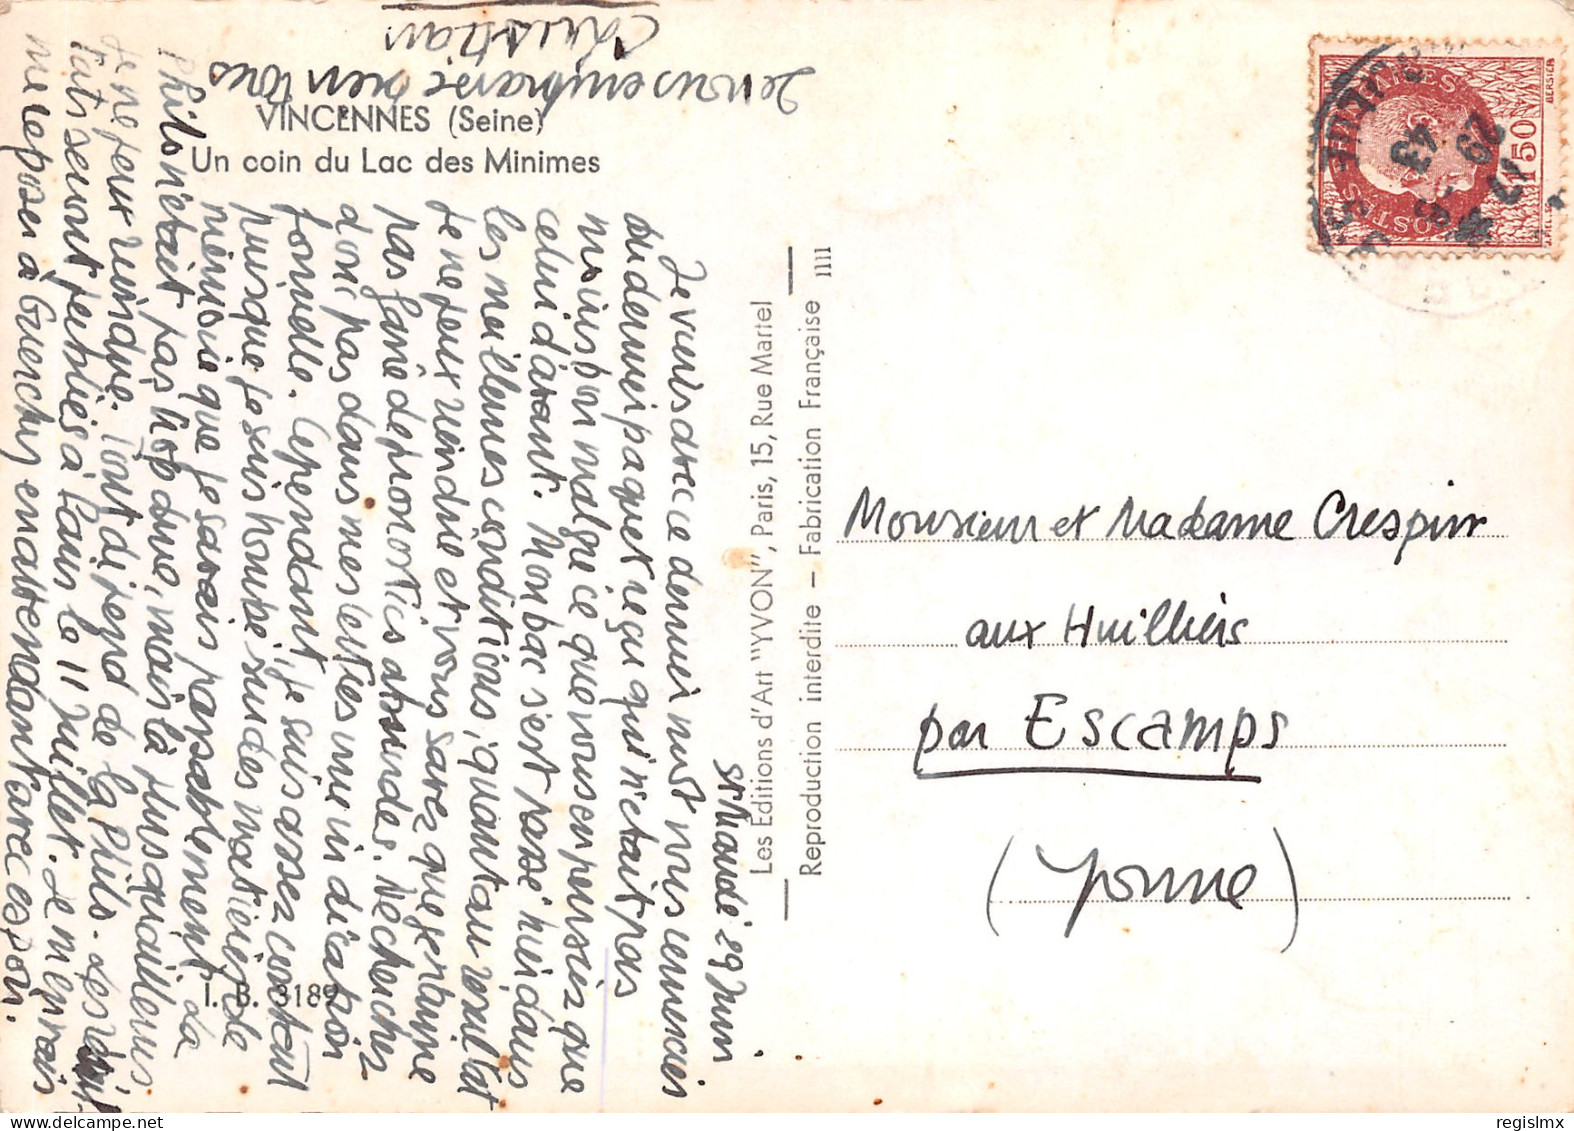 VINCENNES (Seine)
Un coin du Lac des Minimes
St Mandé 29 Juin
Je viens avec ce dernier mot vous remercier
du dernier paquet reçu qui n'etait pas
moins bon malgré ce que vous en pensiez que
celui d'avant. Mon bac s'est passé hier dans
les meilleures conditions, quant au resultat
je ne peux rien dire et vous savez que je n'aime
pas faire de pronostics absurdes. Ne cherchez
donc pas dans mes lettres une indication
formelle. Cependant, je suis assez content
puisque je suis tombé sur des matieres de
mémoire que je savais passablement. La
Philo n'etait pas trop dure, mais là plus qu'ailleurs
je ne peux rien dire. Tout dépend de la Philo. Les résul-
tats seront publiés à Paris le 11 Juillet. Je m'en vais
me reposer à Guerchy en attendant avec espoir.
Je vous embrasse bien tous
Christian
Les Editions d'Art "YVON", Paris, 15, Rue Martel
Reproduction interdite — Fabrication Française
1111
I. B. 3189
Monsieur et Madame Crespin
aux Huilliers
par Escamps
(Yonne)
POSTES
1F50
BERSIER
17
29
-6
43
regislmx